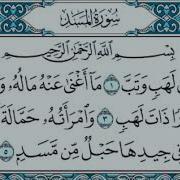 سُورَةُ الْمَسَدِ
بِسْمِ اللَّهِ الرَّحْمَٰنِ الرَّحِيمِ
لَهَبٍ وَتَبَّ ١ مَا أَغْنَىٰ عَنْهُ مَالُهُ وَ
رًا ذَاتَ لَهَبٍ ٣ وَامْرَأَتُهُ حَمَّالَةَ
فِي جِيدِهَا حَبْلٌ مِّن مَّسَدٍ ٥